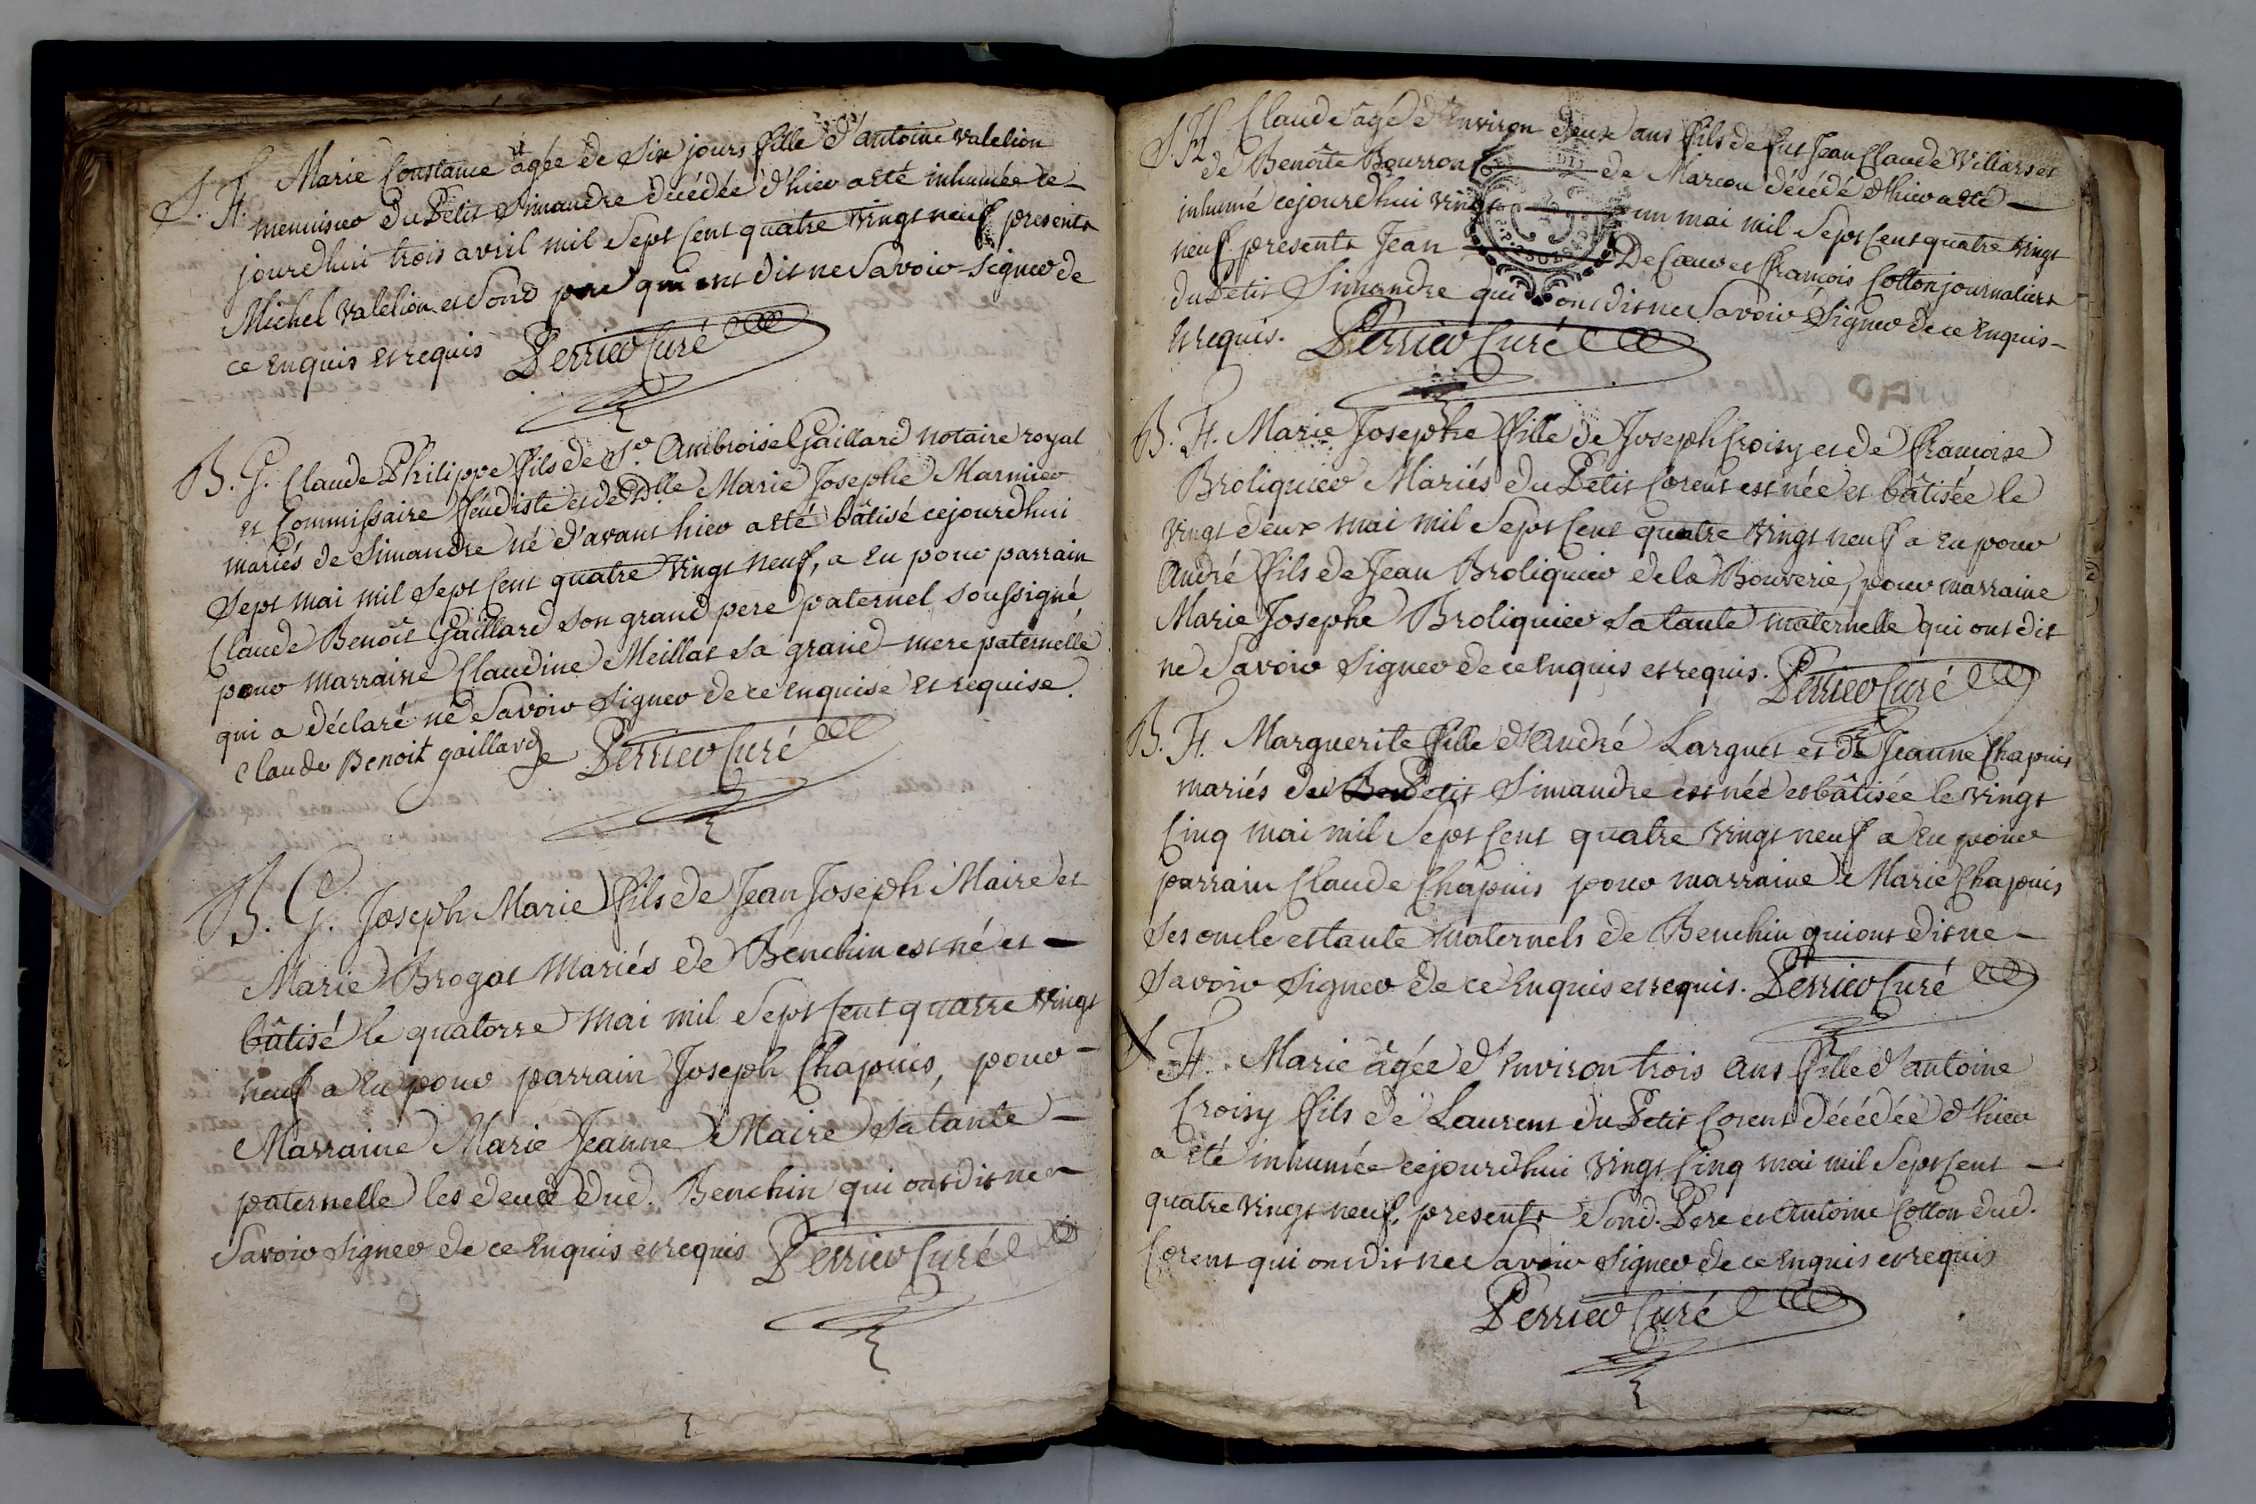 S. F. Marie Constance âgée de Six jours fille d'antoine Valelion
menuisier du Petit Simandre décédée d'hier a été inhumée ce
jourdhui trois avril mil Sept Cent quatre Vingt neuf presents
Michel Valelion et Sond pere qui ont dit ne Savoir Signer de
ce Enquis et requis Perrier Curé
B. G. Claude Philippe fils de Sr. Ambroise Gaillard notaire royal
et Commissaire feudiste et de Dlle Marie Josephe Marmier
mariés de Simandre né d'avant hier a été bâtisé cejourdhui
Sept mai mil Sept Cent quatre Vingt neuf, a Eu pour parrain
Claude Benoît Gaillard Son grand pere paternel Soussigné,
pour marraine Claudine Meillat Sa grand-mere paternelle
qui a déclaré ne Savoir Signer de ce Enquise et requise.
Claude Benoit gaillard Perrier Curé
B. G. Joseph Marie fils de Jean Joseph Maire et
Marie Brogat Mariés de Benchin est né et
bâtisé le quatorze Mai mil Sept Cent quatre Vingt
neuf a Eu pour parrain Joseph Chapuis, pour
Marraine Marie Jeanne Maire Sa tante
paternelle les deux dud. Benchin qui ont dit ne
Savoir Signer de ce Enquis et requis Perrier Curé
S. F. Claude âgé d'Environ deux ans fils de fut Jean Claude Villars et
de Benoîte Bourron de Marcou décédé d'hier a été
inhumé cejourdhui Vingt un mai mil Sept Cent quatre Vingt
neuf presents Jean De Coeur et François Cotton journaliers
du Petit Simandre qui ont dit ne Savoir Signer de ce Enquis
et requis. Perrier Curé
B. F. Marie Josephe fille de Joseph Croisy et de francoise
Broliquier Mariés du Petit Corent est née et bâtisée le
Vingt deux mai mil Sept Cent quatre Vingt neuf a Eu pour
André fils de Jean Broliquier de la Bouverie, pour marraine
Marie Josephe Broliquier Sa tante maternelle qui ont dit
ne Savoir Signer de ce Enquis et requis. Perrier Curé
B. F. Marguerite fille d'André Larguet et de Jeanne Chapuis
mariés du Petit Simandre est née et bâtisée le Vingt
Cinq mai mil Sept Cent quatre Vingt neuf a Eu pour
parrain Claude Chapuis pour marraine Marie Chapuis
Ses oncle et tante maternels de Benchin qui ont dit ne
Savoir Signer de ce Enquis et requis. Perrier Curé
S. F. Marie âgée d'Environ trois ans fille d'antoine
Croisy fils de Laurent du Petit Corent décédée d'hier
a été inhumée cejourdhui Vingt Cinq mai mil Sept Cent
quatre Vingt neuf, presents Sond. Pere et Antoine Cotton dud.
Corent qui ont dit ne Savoir Signer de ce Enquis et requis
Perrier Curé